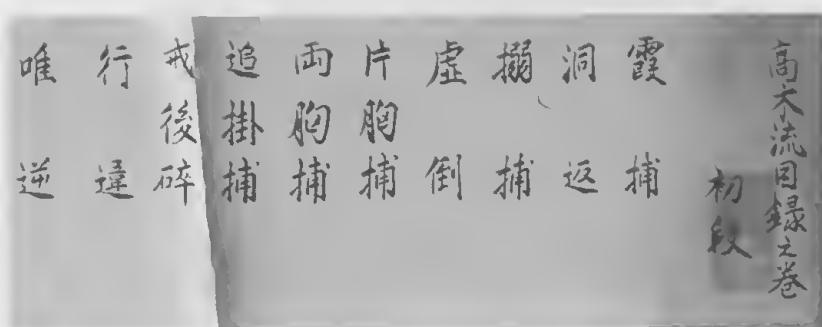 高木流目録之巻
初段
霞捕
洞返
搦捕
虚倒
片胸捕
両胸捕
追掛捕
戒後砕
行違
唯逆